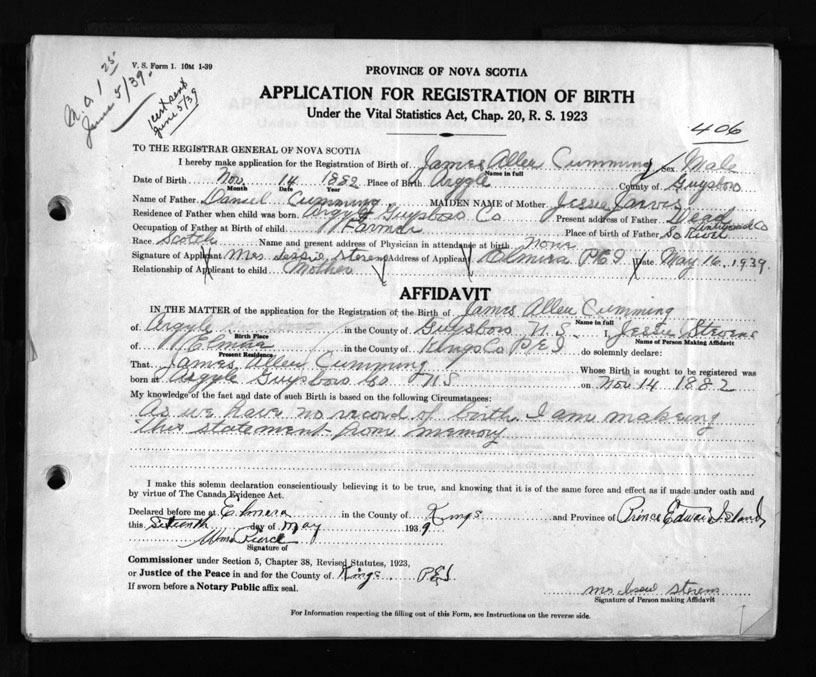 V. S. Form 1. 10M 1-39
M.O. 1 25
June 5/39
June 5/39
PROVINCE OF NOVA SCOTIA
APPLICATION FOR REGISTRATION OF BIRTH
Under the Vital Statistics Act, Chap. 20, R. S. 1923
406
TO THE REGISTRAR GENERAL OF NOVA SCOTIA
I hereby make application for the Registration of Birth of James Allen Cumming Sex Male
Name in full
Date of Birth Nov 14 1882 Place of Birth Argyle County of Guysboro
Month Date Year
Name of Father Daniel Cumming MAIDEN NAME of Mother Jessie Jarvis
Residence of Father when child was born Argyle Guysboro Co Present address of Father Dead
Occupation of Father at Birth of child Farmer Place of birth of Father So River Antigonish Co
Race Scotch Name and present address of Physician in attendance at birth None
Signature of Applicant Mrs Jessie Stevens Address of Applicant Elmira P.E.I Date May 16, 1939
Relationship of Applicant to child Mother
AFFIDAVIT
IN THE MATTER of the application for the Registration of the Birth of James Allen Cumming
Name in full
of Argyle in the County of Guysboro N.S. I, Jessie Stevens
Birth Place Name of Person Making Affidavit
of Elmira in the County of Kings Co P.E.I do solemnly declare:
Present Residence
That James Allen Cumming Whose Birth is sought to be registered was
born at Argyle Guysboro Co N.S on Nov 14 1882
My knowledge of the fact and date of such Birth is based on the following Circumstances:
As we have no record of birth I am makeing
this statement from memory
I make this solemn declaration conscientiously believing it to be true, and knowing that it is of the same force and effect as if made under oath and
by virtue of The Canada Evidence Act.
Declared before me at Elmira in the County of Kings and Province of Prince Edward Island
this Sixteenth day of May 1939
Signature of
Commissioner under Section 5, Chapter 38, Revised Statutes, 1923,
or Justice of the Peace in and for the County of Kings P.E.I.
If sworn before a Notary Public affix seal.
Mrs Jessie Stevens
Signature of Person making Affidavit
For Information respecting the filling out of this Form, see Instructions on the reverse side.